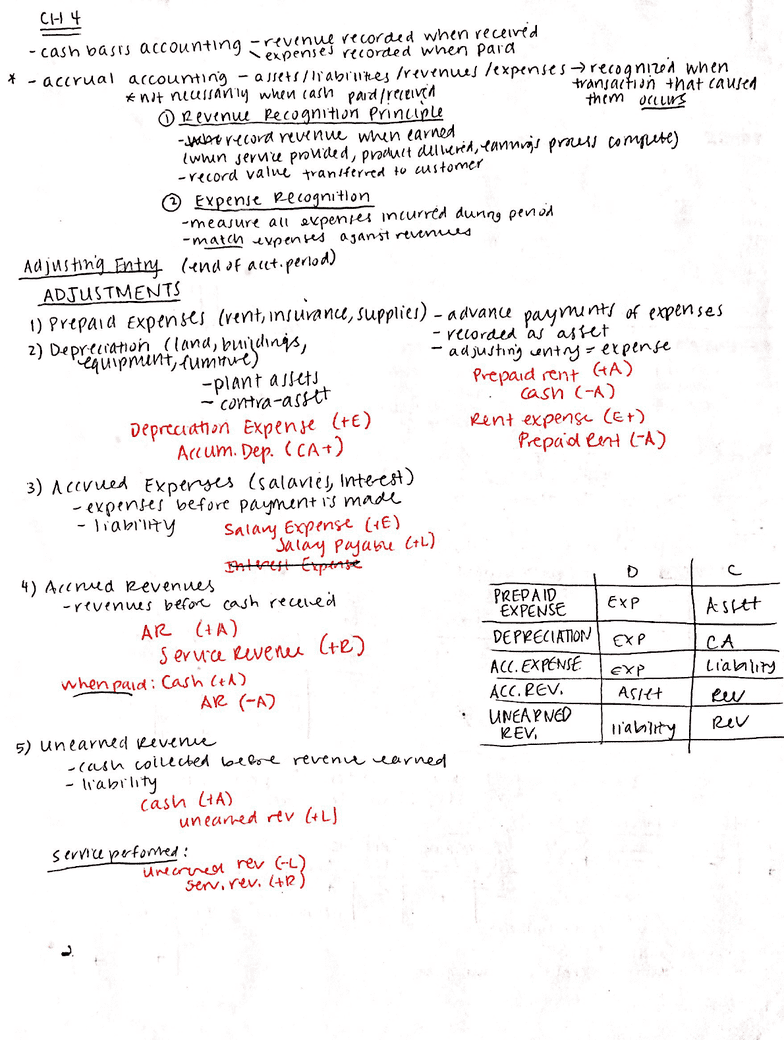 CH 4
- cash basis accounting - revenue recorded when received
- expenses recorded when paid
* - accrual accounting - assets/liabilities/revenues/expenses → recognized when
transaction that caused
them occurs
* not necessarily when cash paid/received
① Revenue Recognition Principle
- record revenue when earned
(when service provided, product delivered, earnings process complete)
- record value transferred to customer
② Expense Recognition
- measure all expenses incurred during period
- match expenses against revenues
Adjusting Entry (end of acct. period)
ADJUSTMENTS
1) Prepaid Expenses (rent, insurance, supplies) - advance payments of expenses
- recorded as asset
- adjusting entry = expense
Prepaid rent (+A)
cash (-A)
Rent expense (E+)
Prepaid Rent (-A)
2) Depreciation (land, buildings,
equipment, furniture)
- plant assets
- contra-asset
Depreciation Expense (+E)
Accum. Dep. (CA+)
3) Accrued Expenses (salaries, Interest)
- expenses before payment is made
- liability
Salary Expense (+E)
Salary Payable (+L)
Interest Expense
4) Accrued Revenues
- revenues before cash received
AR (+A)
Service Revenue (+R)
when paid: Cash (+A)
AR (-A)
5) Unearned Revenue
- cash collected before revenue earned
- liability
cash (+A)
unearned rev (+L)
Service performed:
unearned rev (-L)
serv. rev. (+R)
D C
PREPAID EXPENSE EXP Asset
DEPRECIATION EXP CA
ACC. EXPENSE EXP Liability
ACC. REV. Asset Rev
UNEARNED REV. liability Rev